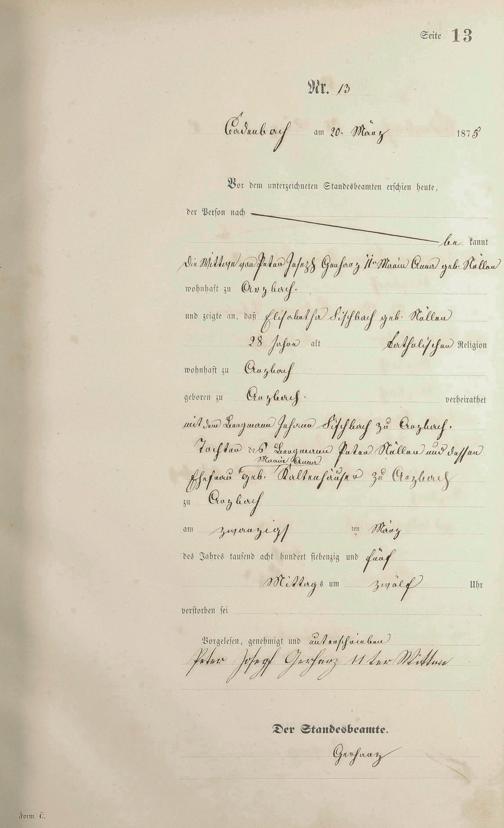 Seite 13
Nr. 13
Cadenbach am 20. März 1875
Vor dem unterzeichneten Standesbeamten erschien heute,
der Person nach
be kannt
die Wittwe von Peter Joseph Gerharz 11te Maria Anna geb. Nöllen
wohnhaft zu Arzbach.
und zeigte an, daß Elisabetha Fischbach geb. Nöllen
28 Jahre alt katholischen Religion
wohnhaft zu Arzbach
geboren zu Arzbach. verheirathet
mit dem Bergmann Johann Fischbach zu Arzbach.
Tochter des Bergmann Peter Nöllen und dessen
Maria Anna
Ehefrau geb. Kaltenhäuser zu Arzbach
zu Arzbach
am zwanzigst ten März
des Jahres tausend acht hundert siebenzig und fünf
Mittags um zwölf Uhr
verstorben sei
Vorgelesen, genehmigt und unterschrieben
Peter Josepf Gerharz 11 ter Wittwe
Der Standesbeamte.
Gerharz
Form C.